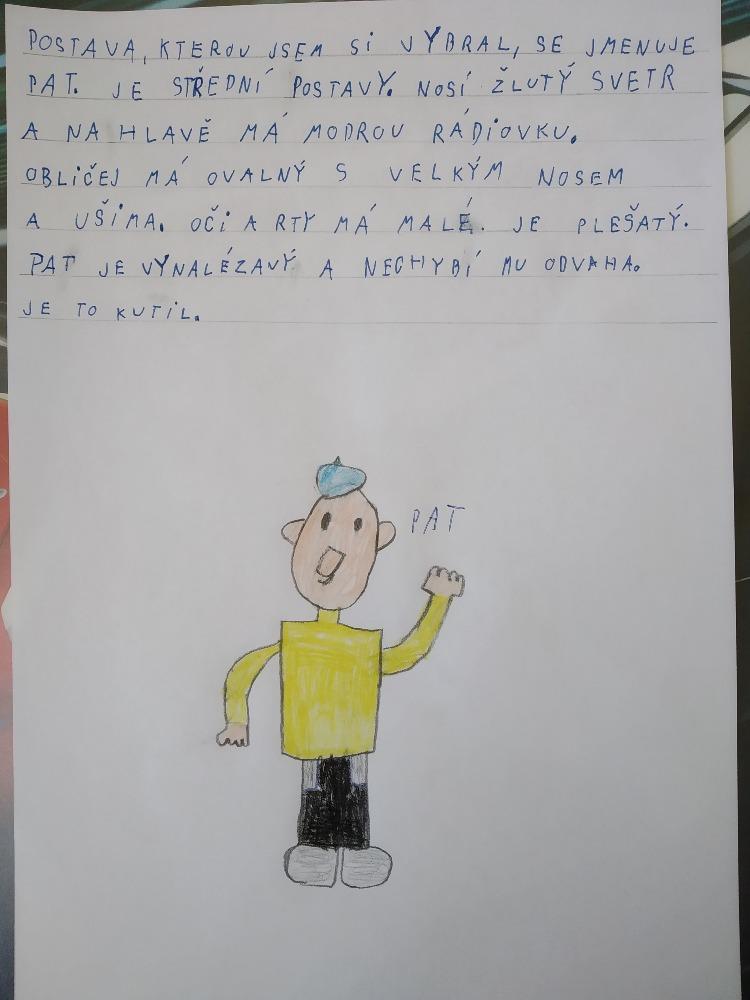 POSTAVA, KTEROU JSEM SI VYBRAL, SE JMENUJE
PAT. JE STŘEDNÍ POSTAVY. NOSÍ ŽLUTÝ SVETR
A NA HLAVĚ MÁ MODROU RÁDIOVKU.
OBLIČEJ MÁ OVALNÝ S VELKÝM NOSEM
A UŠIMA. OČI A RTY MÁ MALÉ. JE PLEŠATÝ.
PAT JE VYNALÉZAVÝ A NECHYBÍ MU ODVAHA.
JE TO KUTIL.
PAT